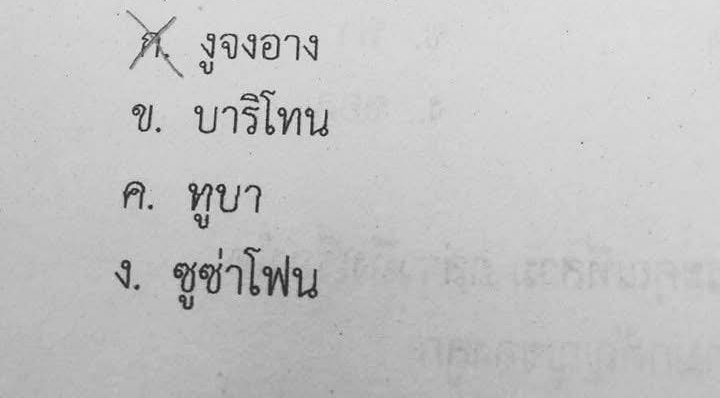 ก. งูจงอาง
ข. บาริโทน
ค. ทูบา
ง. ซูซ่าโฟน